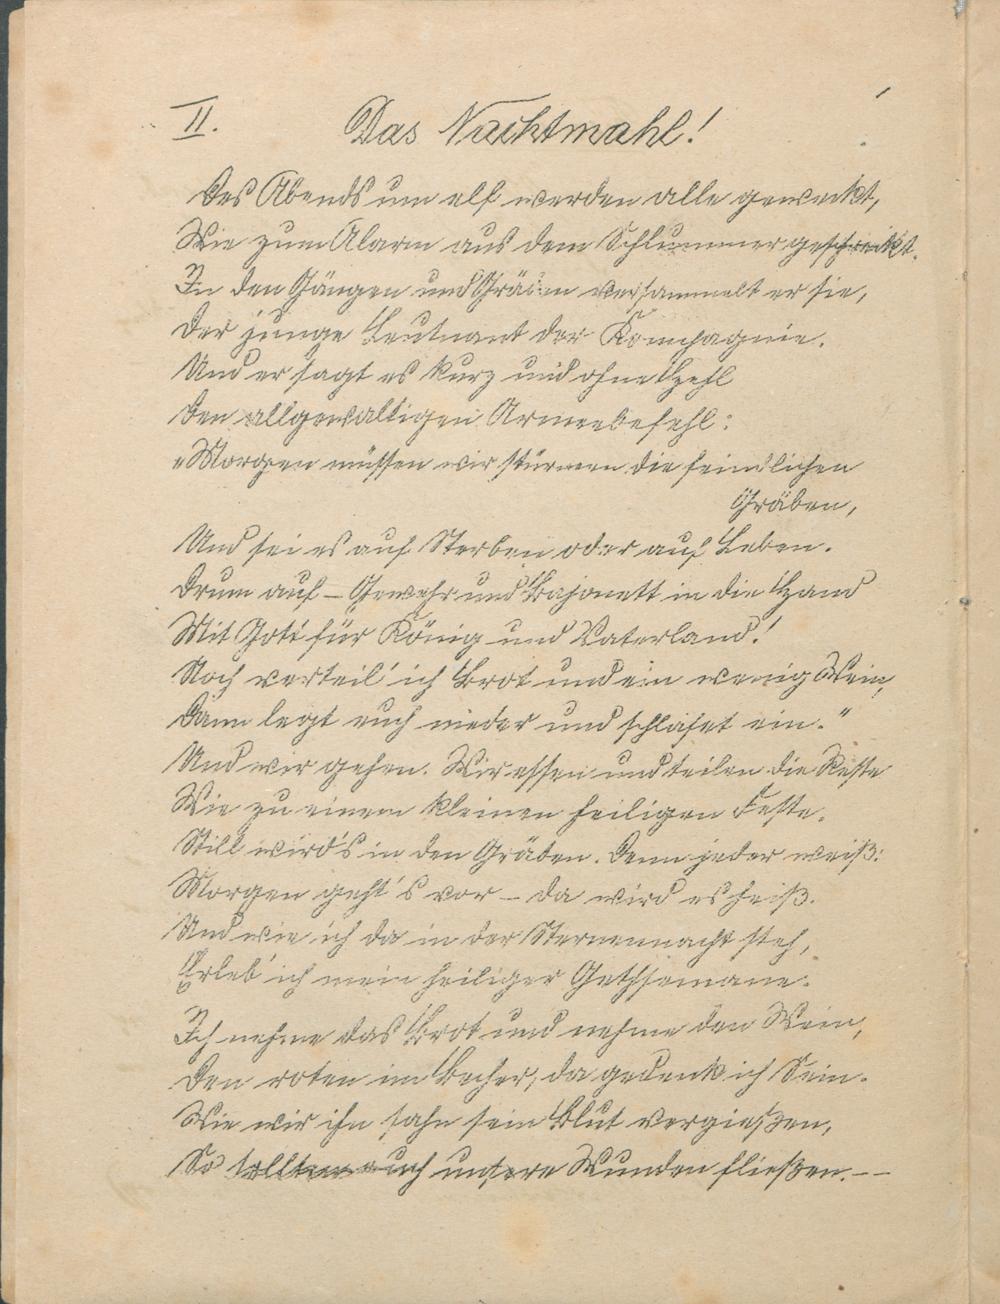 II. Das Nachtmahl!
Des Abends um elf werden alle geweckt,
Wie zum Alarm aus dem Schlummer geschreckt.
In den Gängen und versammelt er sie,
Der junge Leutnant der Kompagnie.
Und er sagt es kurz und ohne Hehl
Den allgewaltigen Armeebefehl:
„Morgen müssen wir stürmen die feindlichen
Gräben,
Und sei es auf Sterben oder auf Leben.
Drum auf – Gewehr und Bajonett in die Hand
Mit Gott für König und Vaterland!
Noch verteil' ich Brot und ein wenig Wein,
Dann legt euch nieder und schlafet ein."
Und wir gehen. Wir essen und teilen die Reste
Wie zu einem kleinen heiligen Feste.
Still wird's in den Gräben. Denn jeder weiß:
Morgen geht's vor – da wird es heiß.
Und wie ich da in der Sternennacht steh,
Erleb' ich mein heiliger Gethsemane.
Ich nehme das Brot und nehme den Wein,
Den roten im Becher, da gedenk ich Sein.
Wie wir ihn sahn sein Blut vergießen,
So sollten auch unsere Wunden fließen. – –